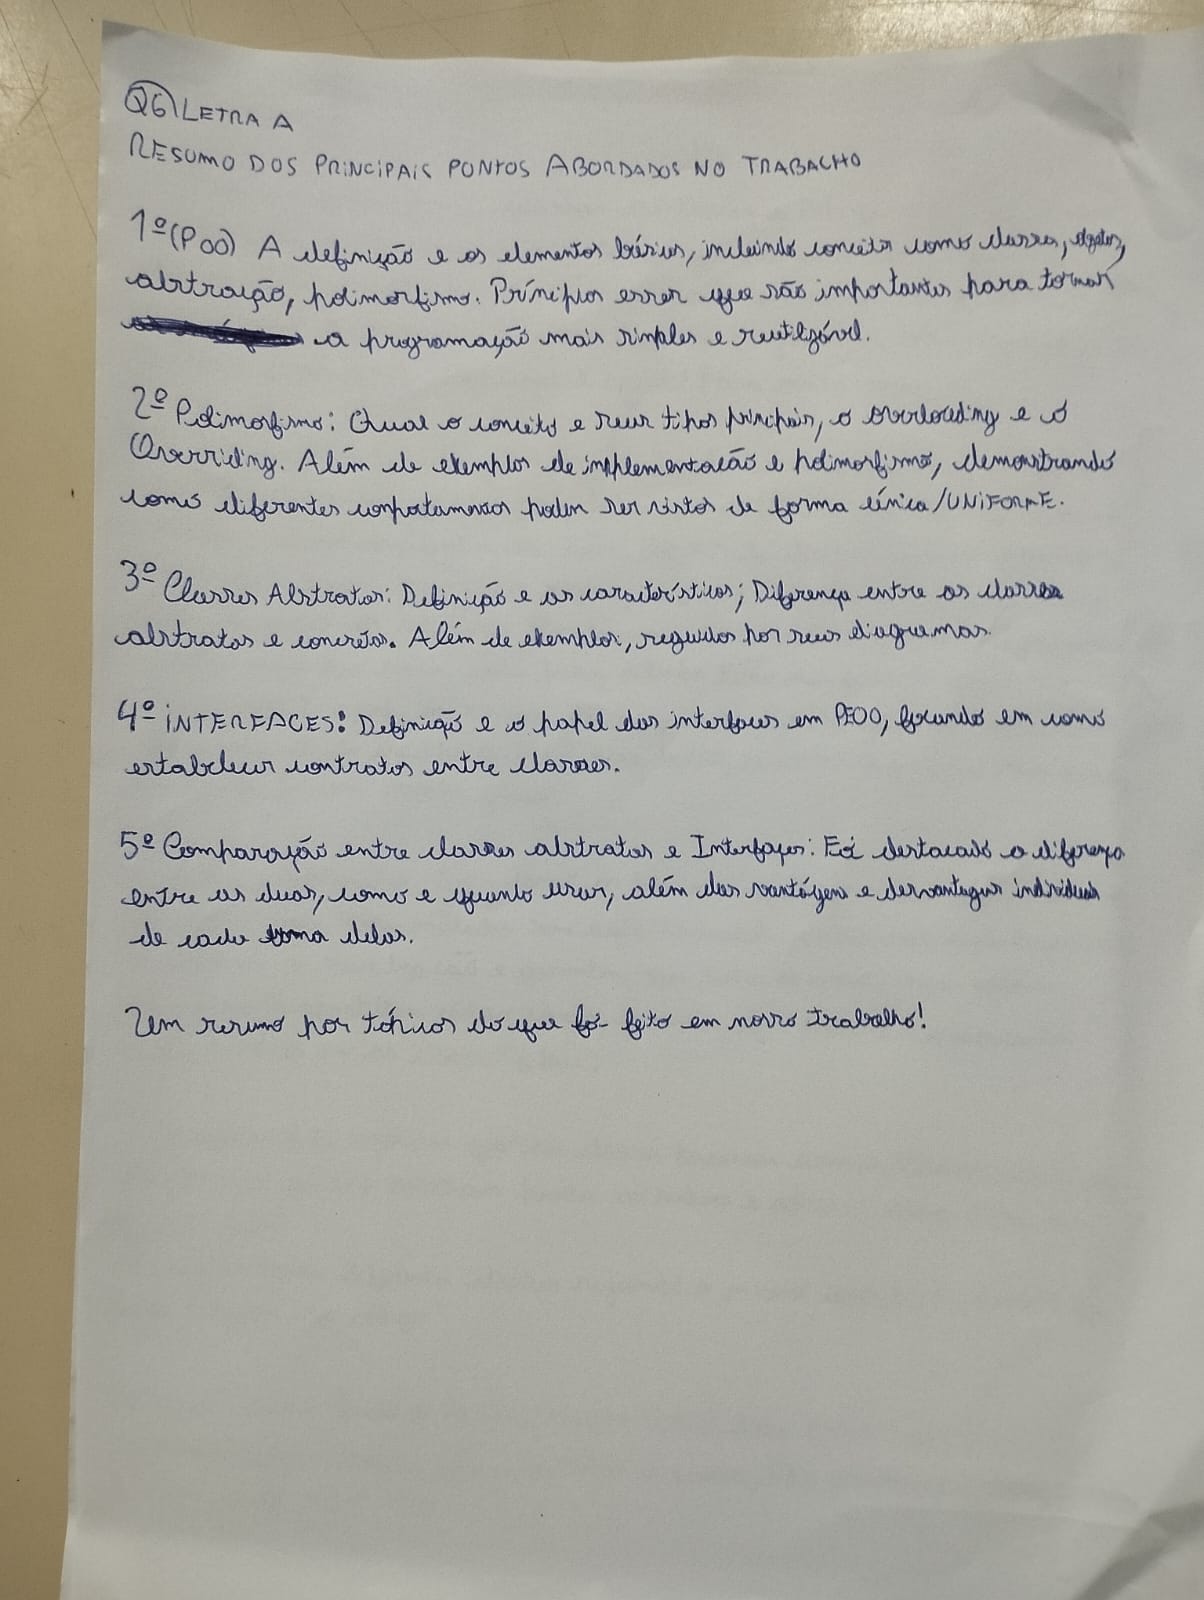 Q6) LETRA A
RESUMO DOS PRINCIPAIS PONTOS ABORDADOS NO TRABALHO
1º (POO) A definição e os elementos básicos, incluindo conceitos como classes, objetos,
abstração, polimorfismo. Princípios esses que são importantes para tornar
a programação mais simples e reutilizável.
2º Polimorfismo: Qual o conceito e seus tipos principais, o overloading e o
Overriding. Além de exemplos de implementação e polimorfismo, demonstrando
como diferentes comportamentos podem ser vistos de forma única/UNIFORME.
3º Classes Abstratas: Definição e as características; Diferença entre as classes
abstratas e concretas. Além de exemplos, seguidos por seus diagramas.
4º INTERFACES: Definição e o papel das interfaces em PEOO, focando em como
estabelecer contratos entre classes.
5º Comparação entre classes abstratas e Interfaces: Foi destacado a diferença
entre as duas, como e quando usar, além das vantagens e desvantagens individuais
de cada uma delas.
Um resumo por tópicos do que foi feito em nosso trabalho!